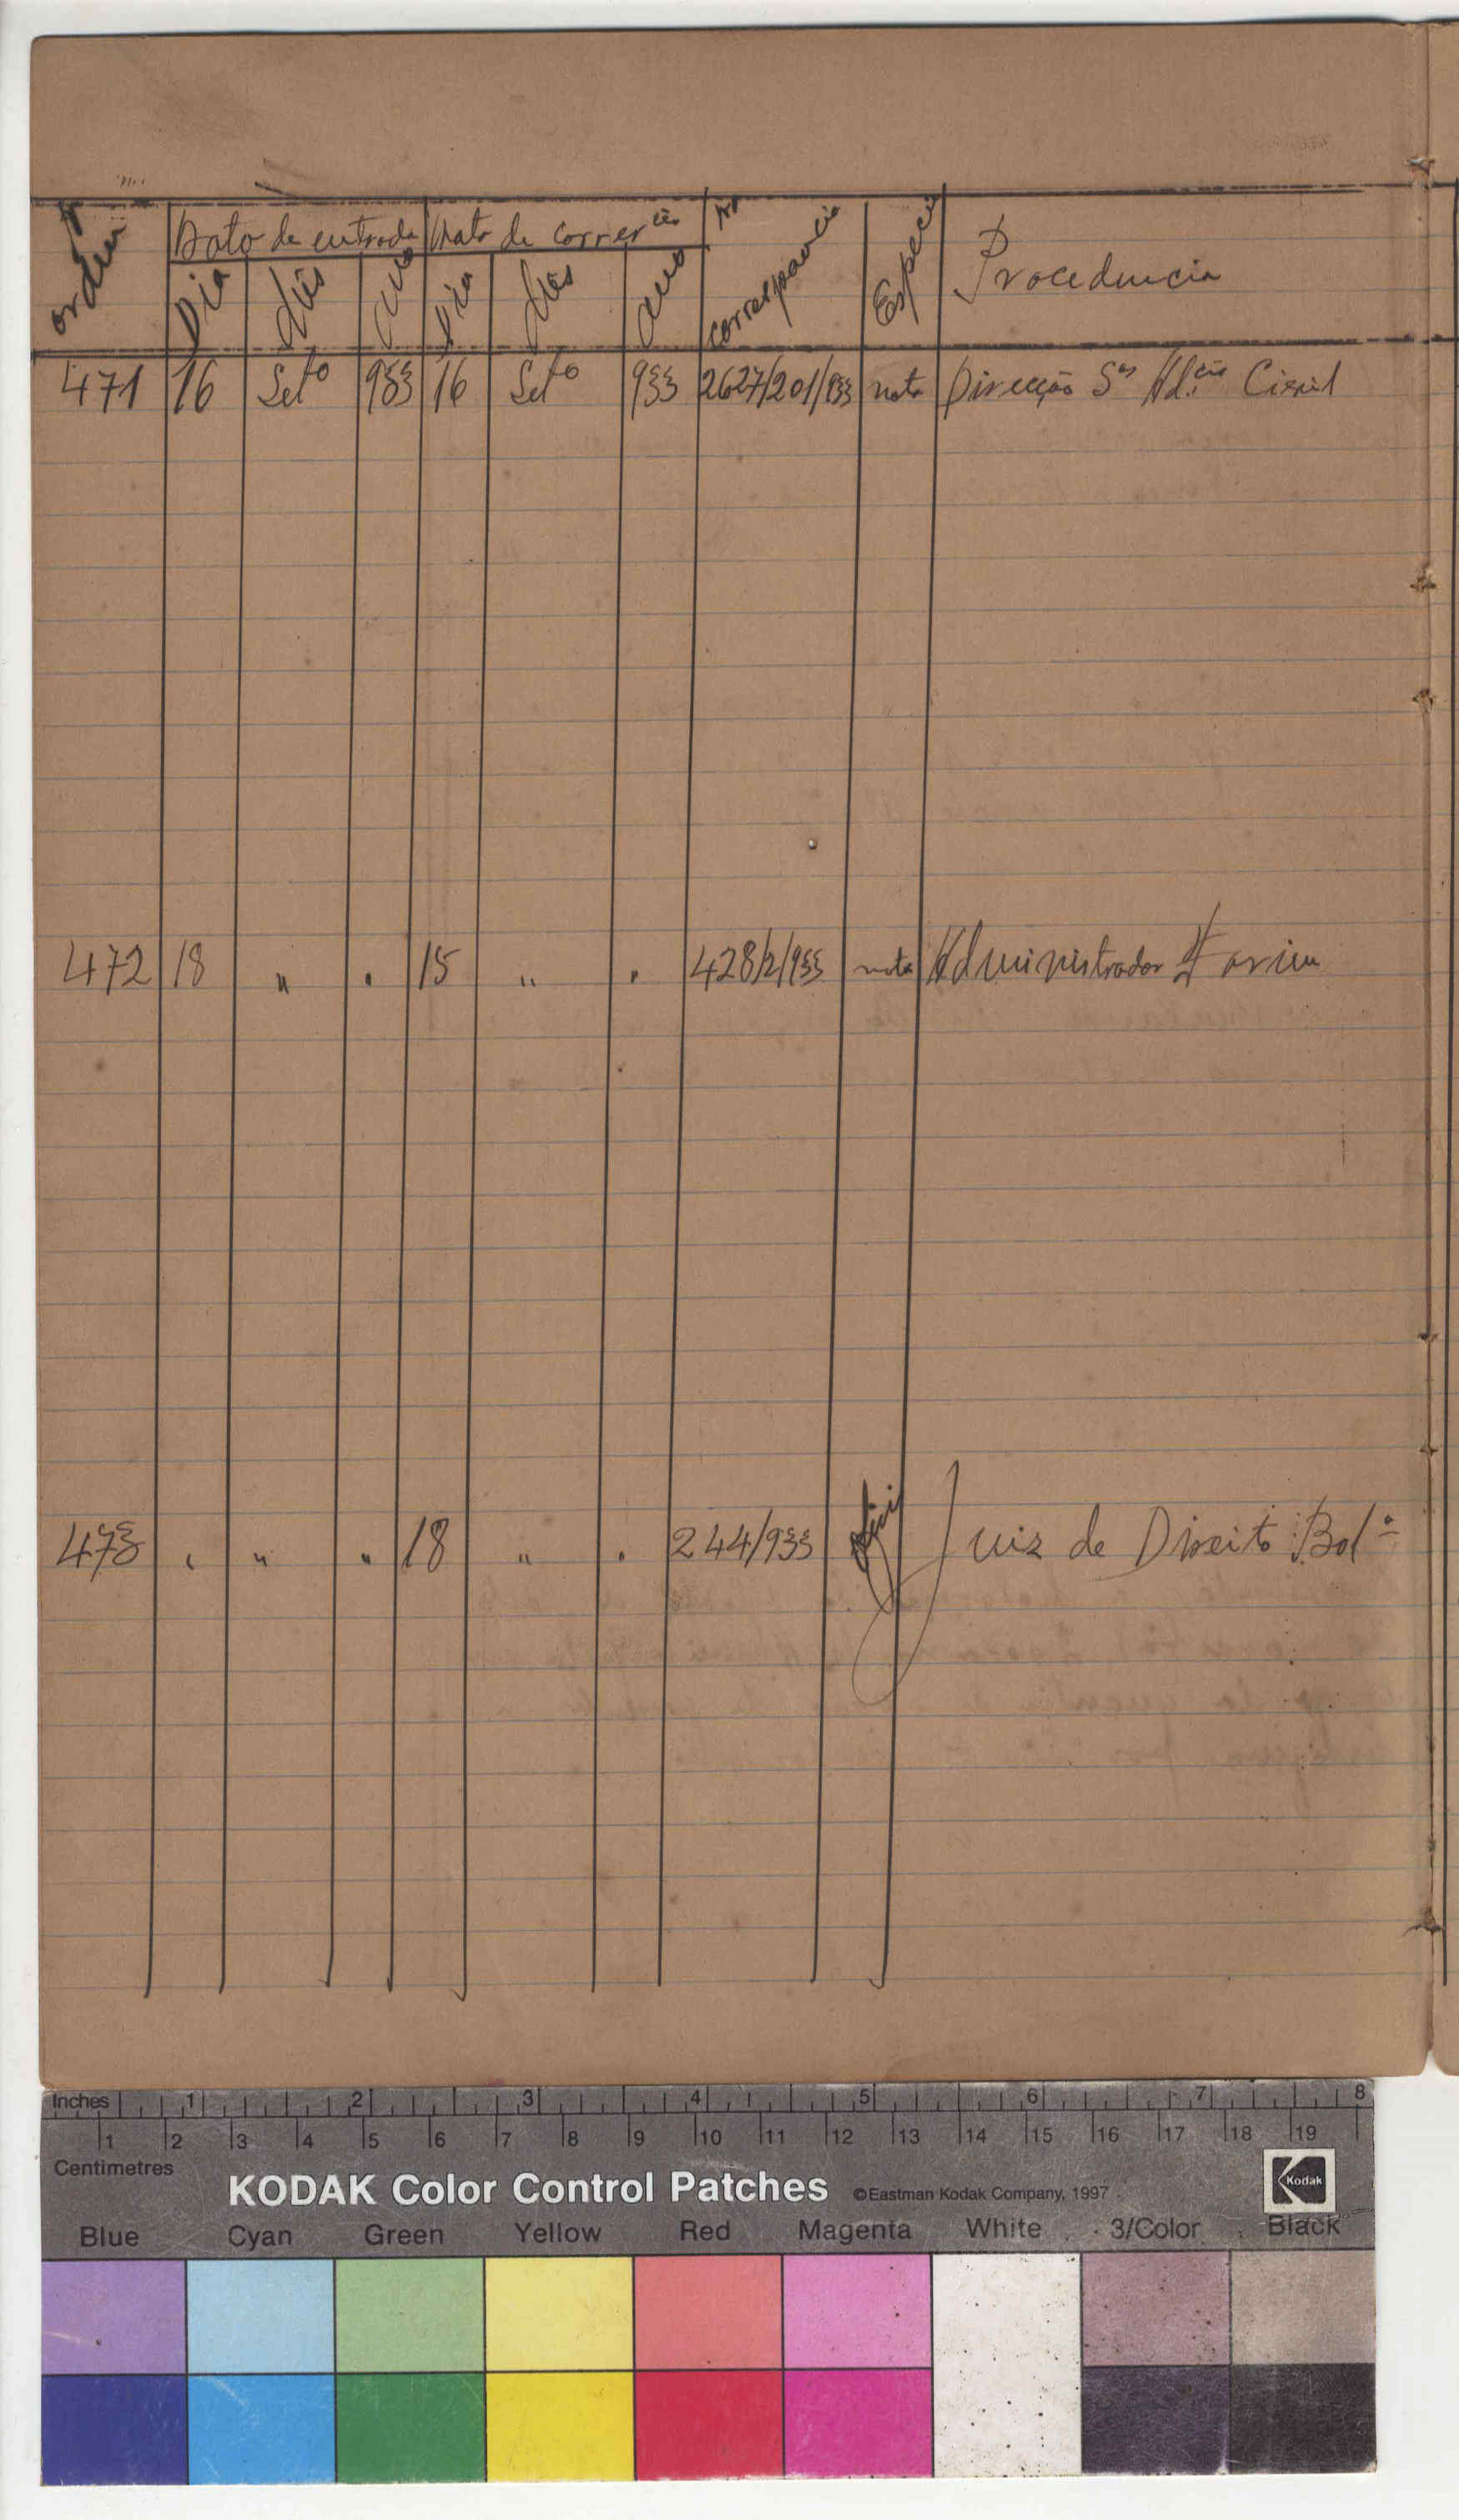 Nº ordem Data de entrada Data de corren cia Nº correspancia Especie Procedencia
Dia Mês ano Dia Mês ano
471 16 Setº 933 16 Setº 933 2627/201/933 nota Direcção Sºs Ad.cão Civil
472 18 " " 15 " " 428/2/933 nota Administrador Farim
473 " " " 18 " " 244/933 Juiz de Direito Bolª
Inches 1 2 3 4 5 6 7 8
1 2 3 4 5 6 7 8 9 10 11 12 13 14 15 16 17 18 19
Centimetres
KODAK Color Control Patches ©Eastman Kodak Company, 1997 Kodak
Blue Cyan Green Yellow Red Magenta White 3/Color Black